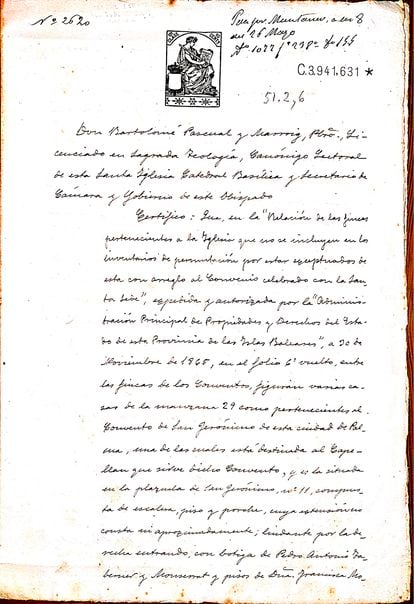 Nº 2620
26 Mayo
C.3.941.631 *
51.2,6
Don Bartolomé Pascual y Marroig, Pbro., Li-
cenciado en Sagrada Teología, Canónigo Lectoral
de esta Santa Iglesia Catedral Basílica y Secretario de
Cámara y Gobierno de este Obispado
Certifico: Que, en la "Relación de las fincas
pertenecientes a la Iglesia que no se incluyen en los
inventarios de permutación por estar exceptuados de
esta con arreglo al Convenio celebrado con la San-
ta Sede", expedida y autorizada por la "Adminis-
tración Principal de Propiedades y Derechos del Esta-
do de esta Provincia de las Islas Baleares", a 20 de
Noviembre de 1865, en el folio 6º vuelto, entre
las fincas de los Conventos, figuran varias ca-
sas de la manzana 29 como pertenecientes al
Convento de San Gerónimo de esta ciudad de Pal-
ma, una de las cuales está destinada al Cape-
llan que sirve dicho Convento, y es la situada
en la plazuela de San Gerónimo, nº 11, compues-
ta de escalera, piso y porche, cuya extensión no
consta ni aproximadamente; lindante por la de-
recha entrando, con botiga de Pedro Antonio Ta-
berner y Monserrat y pisos de Dña. Francisca Mo-